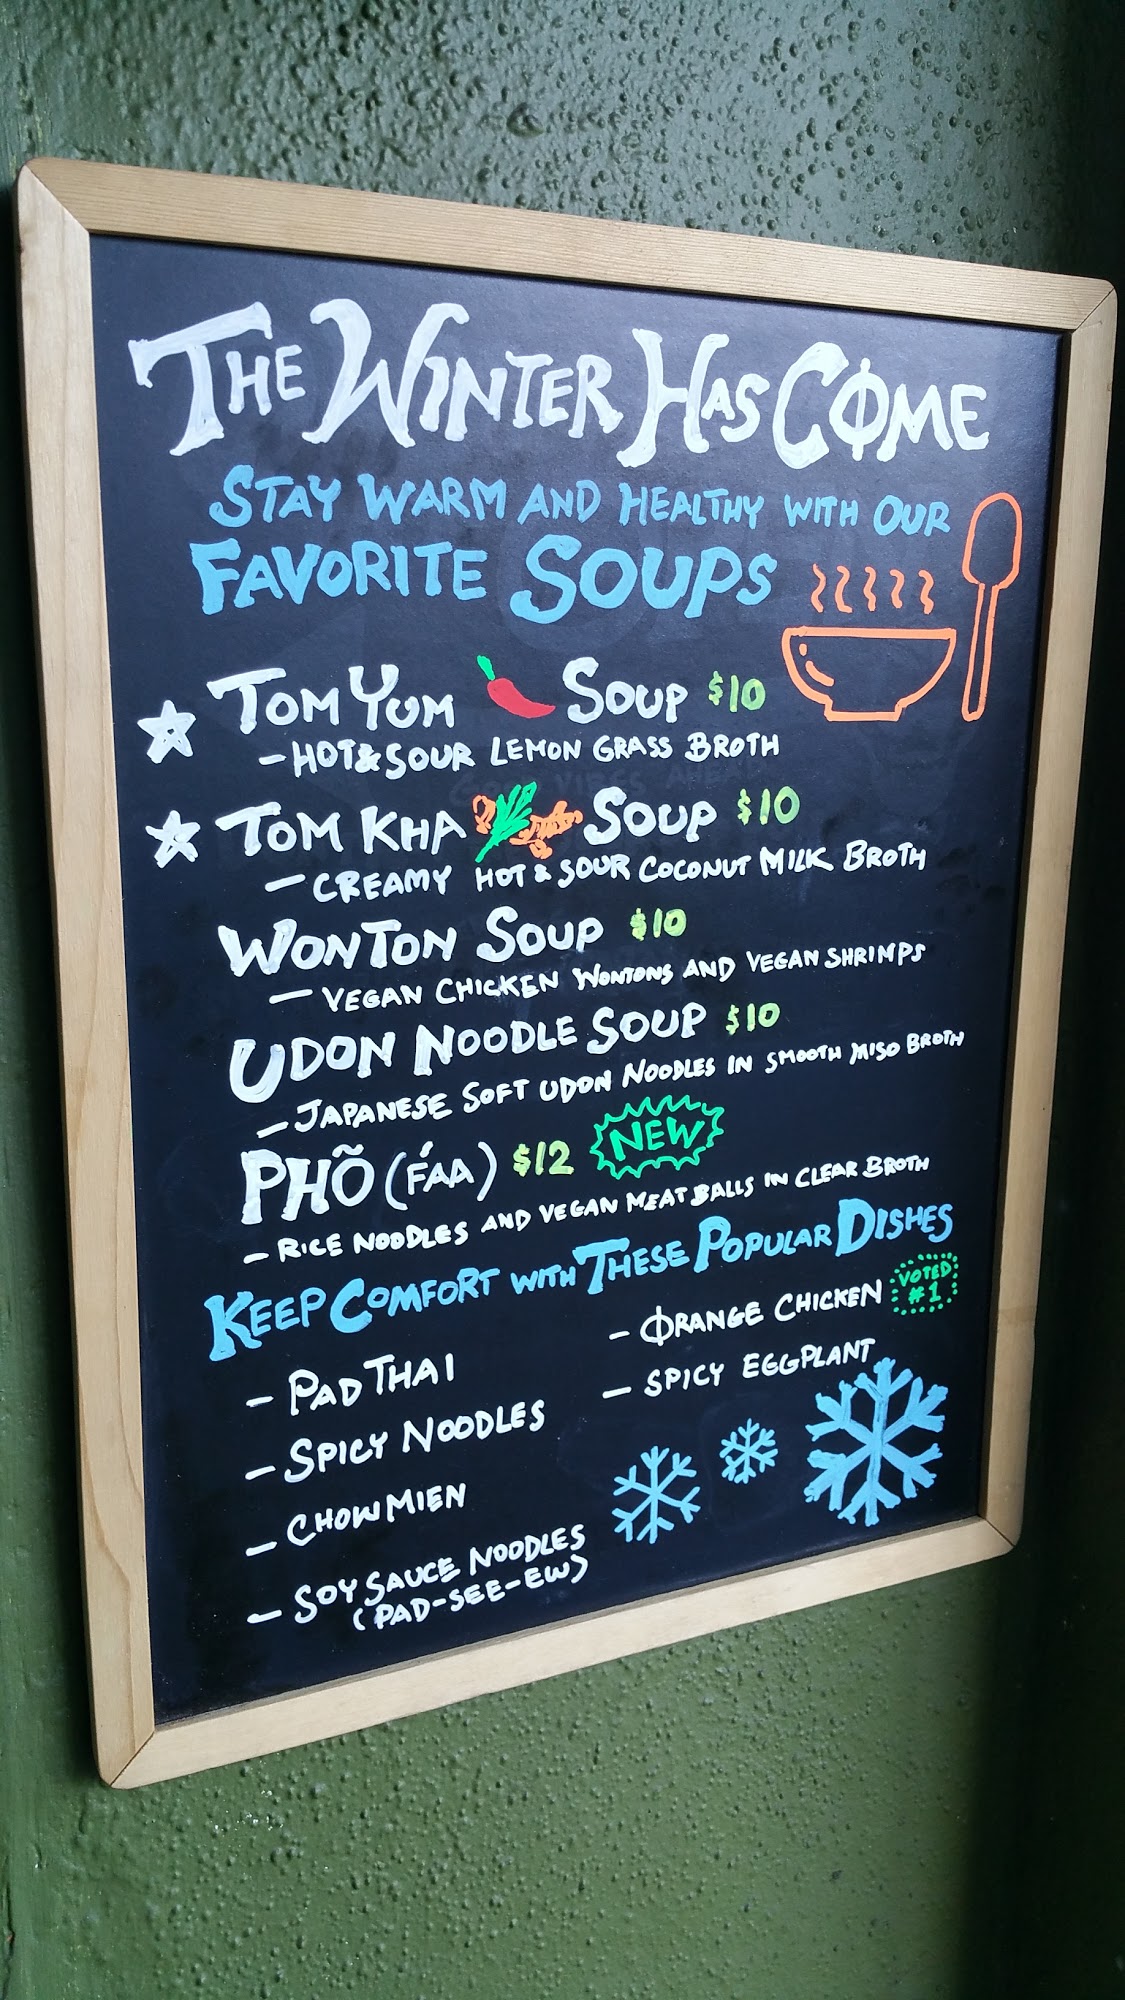 THE WINTER HAS COME
STAY WARM AND HEALTHY WITH OUR
FAVORITE SOUPS
TOM YUM SOUP $10
- HOT & SOUR LEMON GRASS BROTH
TOM KHA SOUP $10
- CREAMY HOT & SOUR COCONUT MILK BROTH
WONTON SOUP $10
- VEGAN CHICKEN WONTONS AND VEGAN SHRIMPS
UDON NOODLE SOUP $10
- JAPANESE SOFT UDON NOODLES IN SMOOTH MISO BROTH
PHÕ (FÁA) $12 NEW
- RICE NOODLES AND VEGAN MEAT BALLS IN CLEAR BROTH
KEEP COMFORT WITH THESE POPULAR DISHES
- PAD THAI
- SPICY NOODLES
- CHOW MIEN
- SOY SAUCE NOODLES
(PAD-SEE-EW)
- ORANGE CHICKEN VOTED
#1
- SPICY EGGPLANT